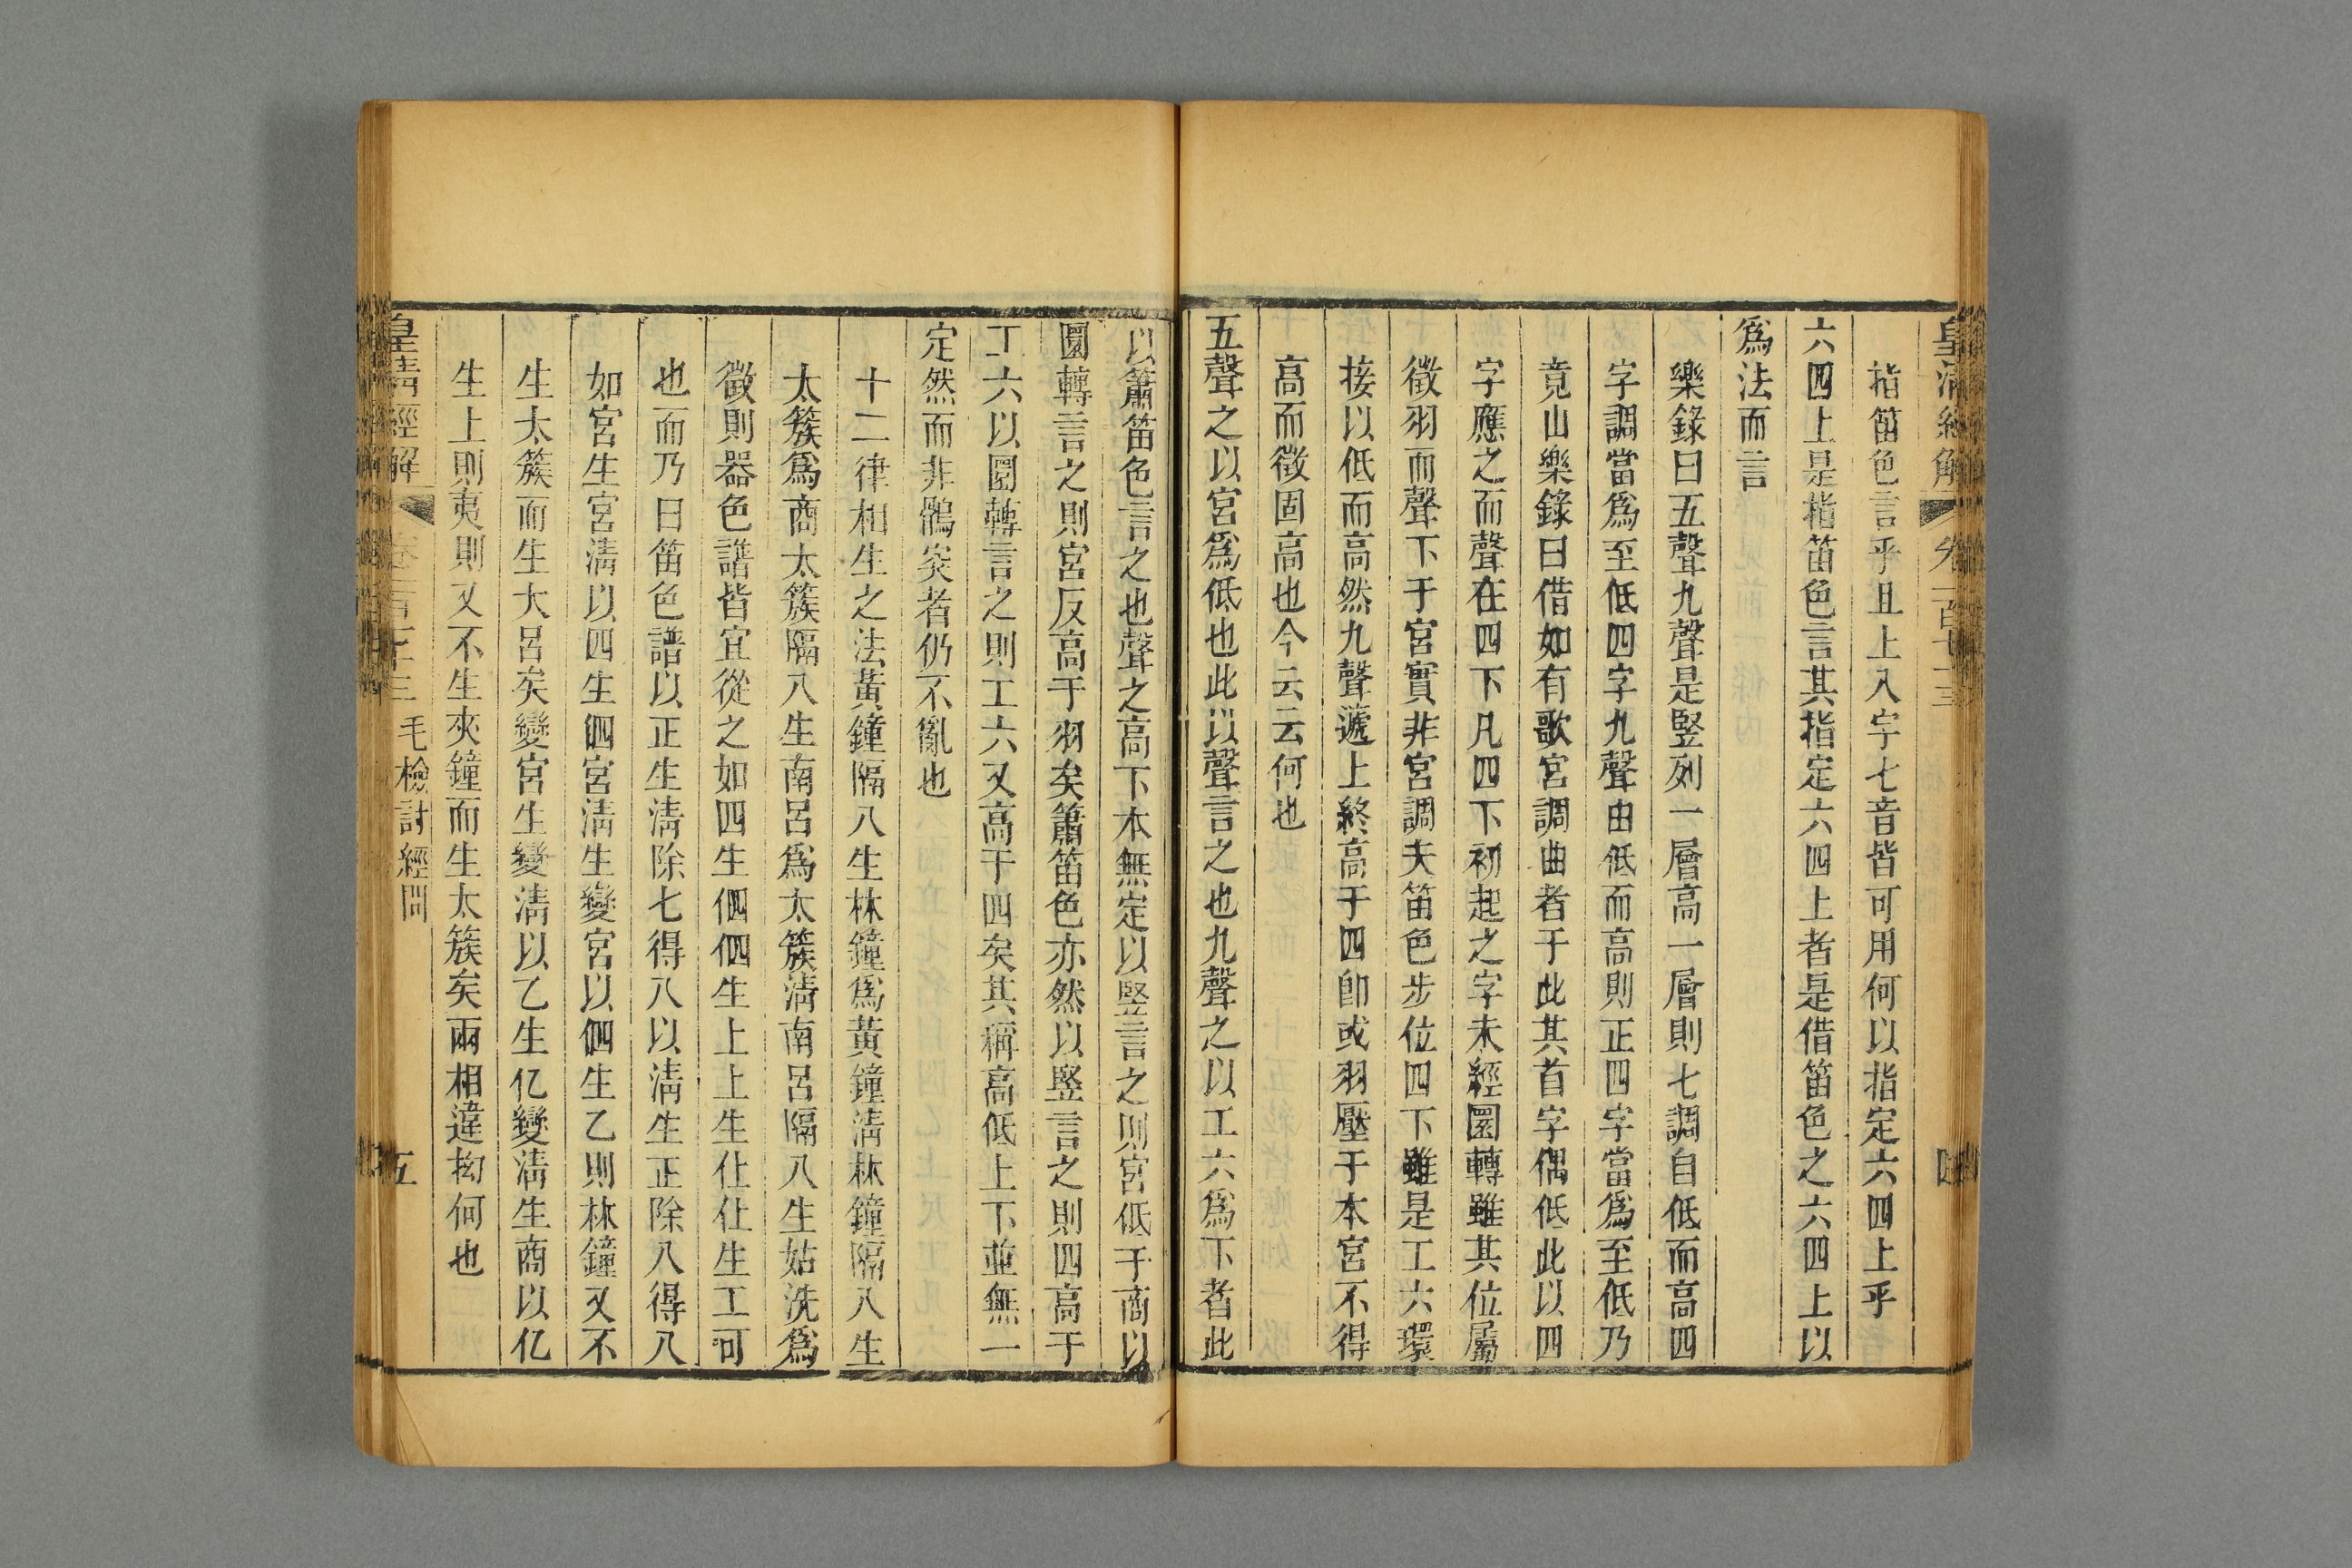 皇清經解 卷一百七十三 四
指笛色言乎且上入字七音皆可用何以指定六四上乎
六四上是指笛色言其指定六四上者是借笛色之六四上以
爲法而言
樂錄曰五聲九聲是竪列一層高一層則七調自低而高四
字調當爲至低四字九聲由低而高則正四字當爲至低乃
竟山樂錄曰借如有歌宮調曲者于此其首字偶低此以四
字應之而聲在四下凡四下初起之字未經圜轉雖其位屬
徵羽而聲下于宮實非宮調夫笛色步位四下雖是工六環
接以低而高然九聲遞上終高于四卽或羽壓于本宮不得
高而徵固高也今云云何也
五聲之以宮爲低也此以聲言之也九聲之以工六爲下者此
以簫笛色言之也聲之高下本無定以竪言之則宮低于商以
圜轉言之則宮反高于羽矣簫笛色亦然以竪言之則四高于
工六以圜轉言之則工六又高于四矣其稱高低上下並無一
定然而非鶻突者仍不亂也
十二律相生之法黃鐘隔八生林鐘爲黃鐘淸林鐘隔八生
太簇爲商太簇隔八生南呂爲太簇淸南呂隔八生姑洗爲
徵則器色譜皆宜從之如四生伵伵生上上生仩仩生工可
也而乃曰笛色譜以正生淸除七得八以淸生正除八得八
如宮生宮淸以四生伵宮淸生變宮以伵生乙則林鐘又不
生太簇而生大呂矣變宮生變淸以乙生亿變淸生商以亿
生上則夷則又不生夾鐘而生太簇矣兩相違拗何也
皇清經解 卷一百七十三 毛檢討經問 五